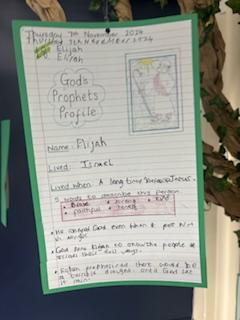 Thursday 7th November 2024
Thursday 7th November 2024
Elijah
Elijah
God's
Prophets
Profile
Name: Elijah
Lived: Israel
Lived when: A long time before Jesus.
5 words to describe this person
• Brave • strong • kind
• faithful • honest
• He obeyed God even when it put him
in danger.
• God Elijah to show the people of
their evil ways.
• Elijah prophesised there would be
a terrible drought and God let
it rain.